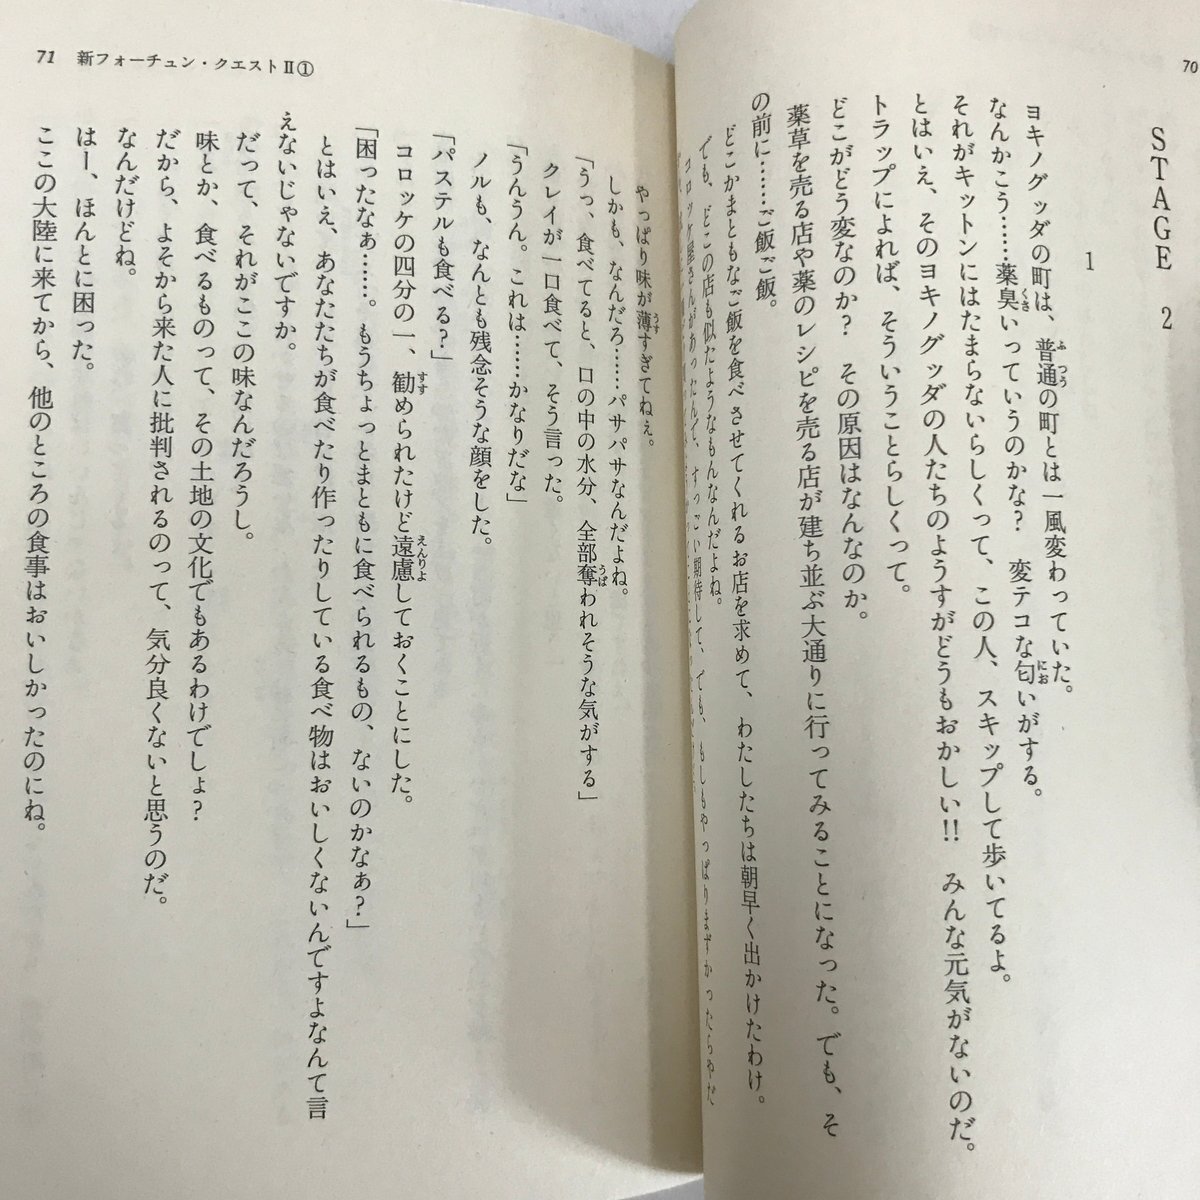 70
STAGE 2
1
ヨキノグッダの町は、普通の町とは一風変わっていた。
なんかこう……薬臭いっていうのかな? 変テコな匂いがする。
それがキットンにはたまらないらしくって、この人、スキップして歩いてるよ。
とはいえ、そのヨキノグッダの人たちのようすがどうもおかしい!! みんな元気がないのだ。
トラップによれば、そういうことらしくって。
どこがどう変なのか? その原因はなんなのか。
薬草を売る店や薬のレシピを売る店が建ち並ぶ大通りに行ってみることになった。でも、そ
の前に……ご飯ご飯。
どこかまともなご飯を食べさせてくれるお店を求めて、わたしたちは朝早く出かけたわけ。
でも、どこの店も似たようなもんなんだよね。
コロッケ屋さんがあったんで、すっごい期待して、でも、もしもやっぱりまずかったらやだ
71 新フォーチュン・クエストⅡ①
やっぱり味が薄すぎてねぇ。
しかも、なんだろ……パサパサなんだよね。
「うっ、食べてると、口の中の水分、全部奪われそうな気がする」
クレイが一口食べて、そう言った。
「うんうん。これは……かなりだな」
ノルも、なんとも残念そうな顔をした。
「パステルも食べる?」
コロッケの四分の一、勧められたけど遠慮しておくことにした。
「困ったなぁ……。もうちょっとまともに食べられるもの、ないのかなぁ?」
とはいえ、あなたたちが食べたり作ったりしている食べ物はおいしくないんですよなんて言
えないじゃないですか。
だって、それがここの味なんだろうし。
味とか、食べるものって、その土地の文化でもあるわけでしょ?
だから、よそから来た人に批判されるのって、気分良くないと思うのだ。
なんだけどね。
はー、ほんとに困った。
ここの大陸に来てから、他のところの食事はおいしかったのにね。